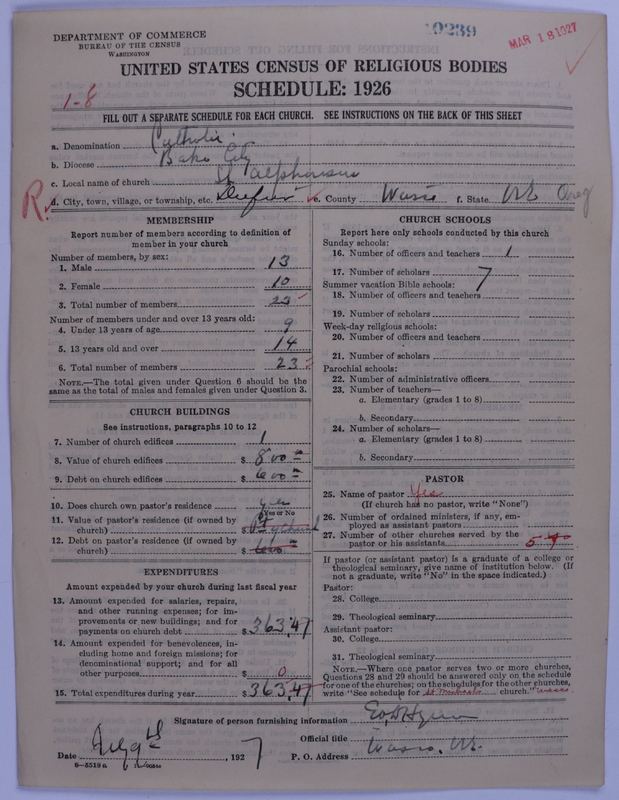 DEPARTMENT OF COMMERCE
BUREAU OF THE CENSUS
WASHINGTON
10239
MAR 18 1927
UNITED STATES CENSUS OF RELIGIOUS BODIES
SCHEDULE: 1926
1-8
FILL OUT A SEPARATE SCHEDULE FOR EACH CHURCH. SEE INSTRUCTIONS ON THE BACK OF THIS SHEET
a. Denomination Catholic
b. Diocese Baker City
c. Local name of church St Alphonsus
R.
d. City, town, village, or township, etc. Dufur e. County Wasco f. State Ore Oreg
MEMBERSHIP
Report number of members according to definition of
member in your church
Number of members, by sex:
1. Male 13
2. Female 10
3. Total number of members 23
Number of members under and over 13 years old:
4. Under 13 years of age 9
5. 13 years old and over 14
6. Total number of members 23
NOTE.—The total given under Question 6 should be the
same as the total of males and females given under Question 3.
CHURCH BUILDINGS
See instructions, paragraphs 10 to 12
7. Number of church edifices 1
8. Value of church edifices $ 800
9. Debt on church edifices $ 600
10. Does church own pastor's residence yes
Yes or No
11. Value of pastor's residence (if owned by
church) $
12. Debt on pastor's residence (if owned by
church) $ 600
EXPENDITURES
Amount expended by your church during last fiscal year
13. Amount expended for salaries, repairs,
and other running expenses; for im-
provements or new buildings; and for
payments on church debt $ 363.47
14. Amount expended for benevolences, in-
cluding home and foreign missions; for
denominational support; and for all
other purposes $ 0
15. Total expenditures during year $ 363.47
CHURCH SCHOOLS
Report here only schools conducted by this church
Sunday schools:
16. Number of officers and teachers 1
17. Number of scholars 7
Summer vacation Bible schools:
18. Number of officers and teachers
19. Number of scholars
Week-day religious schools:
20. Number of officers and teachers
21. Number of scholars
Parochial schools:
22. Number of administrative officers
23. Number of teachers—
a. Elementary (grades 1 to 8)
b. Secondary
24. Number of scholars—
a. Elementary (grades 1 to 8)
b. Secondary
PASTOR
25. Name of pastor Yes
(If church has no pastor, write "None")
26. Number of ordained ministers, if any, em-
ployed as assistant pastors
27. Number of other churches served by the
pastor or his assistants 5
If pastor (or assistant pastor) is a graduate of a college or
theological seminary, give name of institution below. (If
not a graduate, write "No" in the space indicated.)
Pastor:
28. College
29. Theological seminary
Assistant pastor:
30. College
31. Theological seminary
NOTE.—Where one pastor serves two or more churches,
Questions 28 and 29 should be answered only on the schedule
for one of the churches; on the schedules for the other churches,
write "See schedule for St Michaels church." Wasco
Signature of person furnishing information
Official title
Date 192 7 P. O. Address Wasco, Ore.
8-5519 a